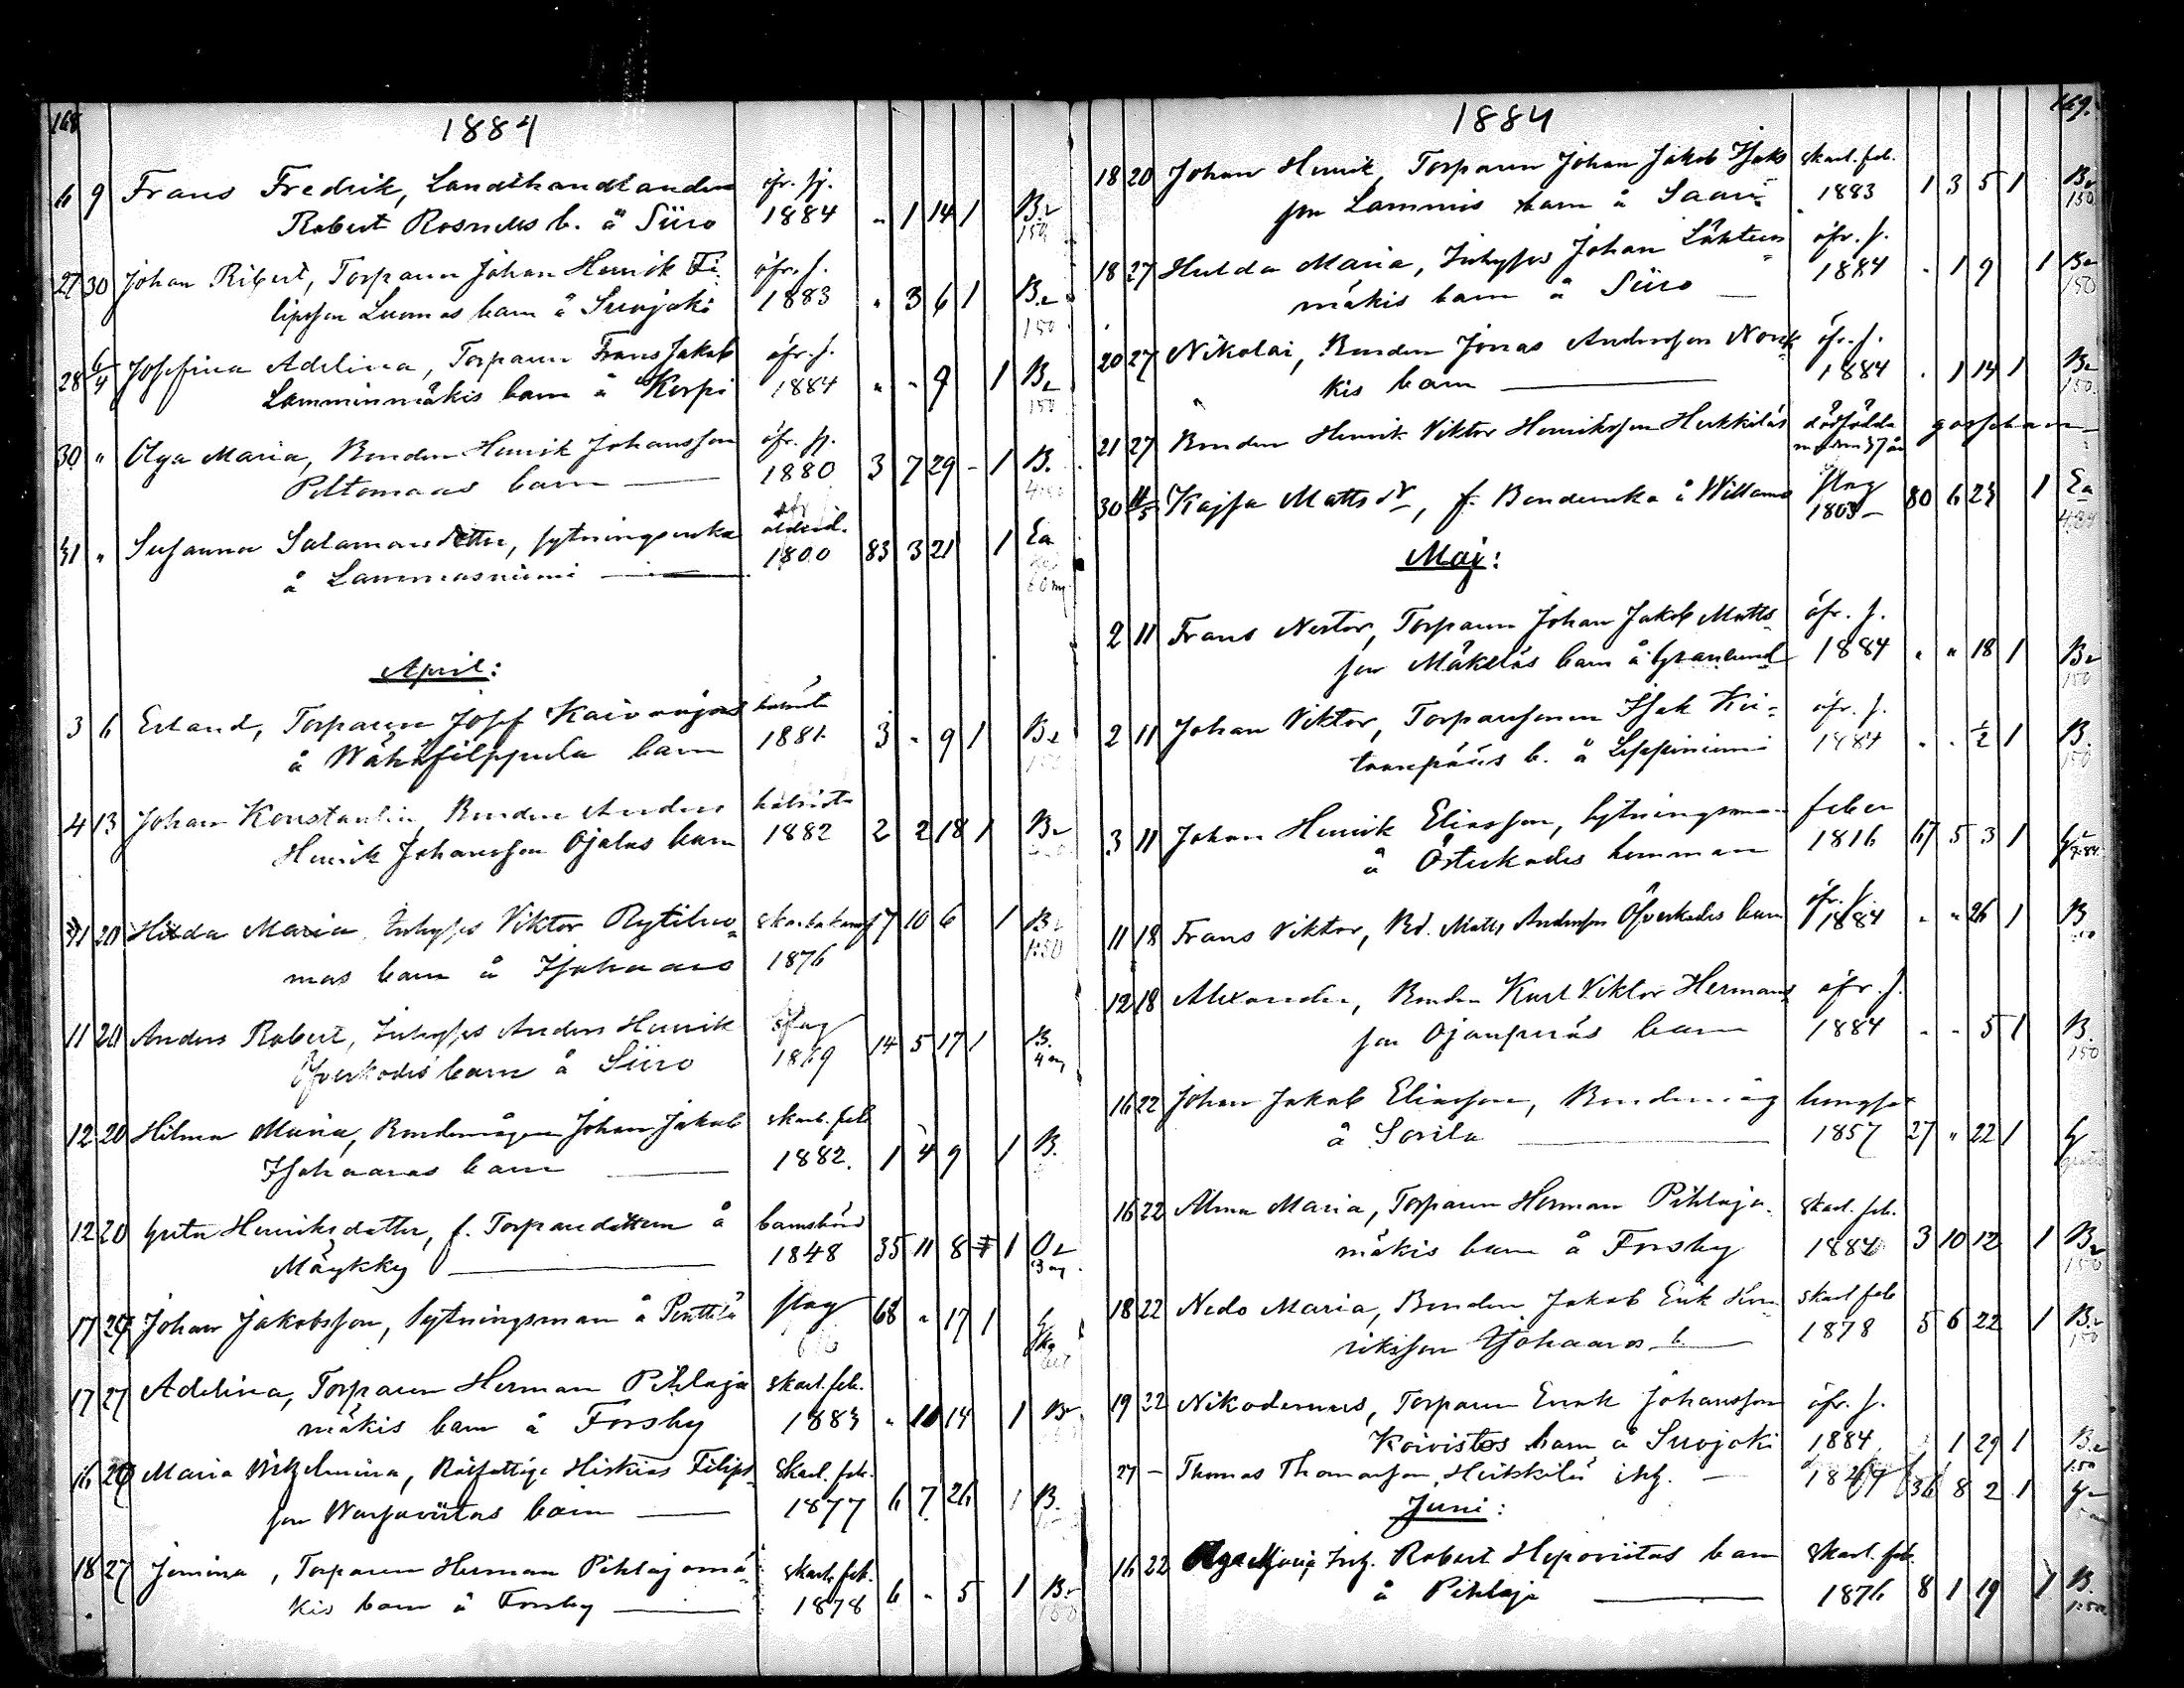 168
1884
6 9 Frans Fredrik, Landthandlanden öfr. sj.
Robert Rosnells b. å Siiro 1884 " 1 14 1 B.
150
27 30 Johan Robert, Torparen Johan Henrik Fi- öfr. s.
lipsson Luomas barn å Suojoki 1883 " 3 6 1 B.
150
28 6/4 Josefina Adelina, Torparen Frans Jakob öfr. s.
Lamminmäkis barn å Korpi 1884 " " 9 1 B
150
30 " Olga Maria, Bonden Henrik Johansson öfr. sj.
Peltomaas barn 1880 3 7 29 - 1 B.
31 " Susanna Salamonsdotter, sytningsenka ålderd.
å Lammasniemi 1800 83 3 21 1 Ea
April:
3 6 Erland, Torparen Josef Kaivoojas
å Wähäfilppula barn 1881 3 " 9 1 B
4 13 Johan Konstantin, Bonden Anders
Henrik Johansson Ojalas barn 1882 2 2 18 1 B
11 20 Hilda Maria, Inhyses Viktor Rytiluo- 7 10 6 1 B
mas barn å Isohaaro 1876 1:50
11 20 Anders Robert, Inhyses Anders Henrik slag
Öfverkodis barn å Siiro 1869 14 5 17 1 B.
12 20 Hilma Maria, Bondemågen Johan Jakob skarl. feb
Isohaaras barn 1882. 1 4 9 1 B.
12 20 Greta Henriksdotter, f. Torpardottern å barnsbörd
Mäykky 1848 35 11 8 1
17 27 Johan Jakobsson, Sytningsman å Penttilä slag 68 " 17 1
17 27 Adelina, Torparen Herman Pihlaja skarl. feb.
mäkis barn å Forsby 1883 " 10 14 1 B
16 20 Maria Wilhelmina, Rotfattige Hiskias Filips- Skarl. feb.
son Warsaviitas barn 1877 6 7 26 1 B.
18 27 Jemina, Torparen Herman Pihlajamä- skarl. feb.
kis barn å Forsby 1878 6 " 5 1 B.
150
169.
1884
18 20 Johan Henrik, Torparen Johan Jakob Isaks skarl. feb.
son Lammis barn å Saari 1883 1 3 5 1 B
150
18 27 Hulda Maria, Inhyses Johan Lähteen öfr. s.
mäkis barn å Siiro 1884 " 1 9 1 B
150
20 27 Nikolai, Bonden Jonas Andersson Nork öfr. s.
kis barn 1884 " 1 14 1 B
150.
21 27 Bonden Henrik Viktor Henriksson Heikkiläs dödfödda gossebarn
30 11/5 Kajsa Mattsdr, f. Bondenka å Willamo slag
1803 80 6 23 1 Ea
Maj:
2 11 Frans Nestor, Torparen Johan Jakob Matts- öfr. s.
son Mäkeläs barn å Granlund 1884 " " 18 1 B
150
2 11 Johan Viktor, Torparsonen Isak Kii- öfr. s.
toonpääs b. å Leppiniemi 1884 " " 1/2 1 B.
150
3 11 Johan Henrik Eliasson, Sytningsman feber
å Österkodis hemman 1816 67 5 3 1
11 18 Frans Viktor, Bd. Matts Andersson Öfverkodis barn öfr. s. 1884 " " 26 1 B
12 18 Alexander, Bonden Karl Viktor Hermans- öfr. s.
son Ojanperäs barn 1884 " " 5 1 B.
150
16 22 Johan Jakob Eliasson, Bondemåg lungsot
å Sorila 1857 27 " 22 1 G
16 22 Alma Maria, Torparen Herman Pihlaja- skarl. feb.
mäkis barn å Forsby 1880 3 10 12 1 B
150
18 22 Nedo Maria, Bonden Jakob Erik Hen- skarl feb
riksson Isohaaros b. 1878 5 6 22 1 B.
150
19 22 Nikodemus, Torparen Enok Johansson öfr. s.
Koivistos barn å Suojoki 1884 1 29 1 B.
1:50
27 — Thomas Thomasson Heikkilä inh. — 1847 36 8 2 1
Juni:
16 22 Olga Maria, Inh. Robert Hepoviitas barn skarl. feb.
å Pihlaja 1876 8 1 19 1 B.
1:50